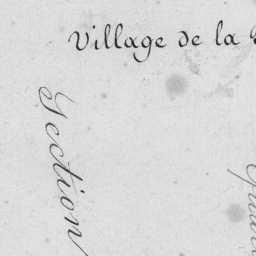 Village de la
Section